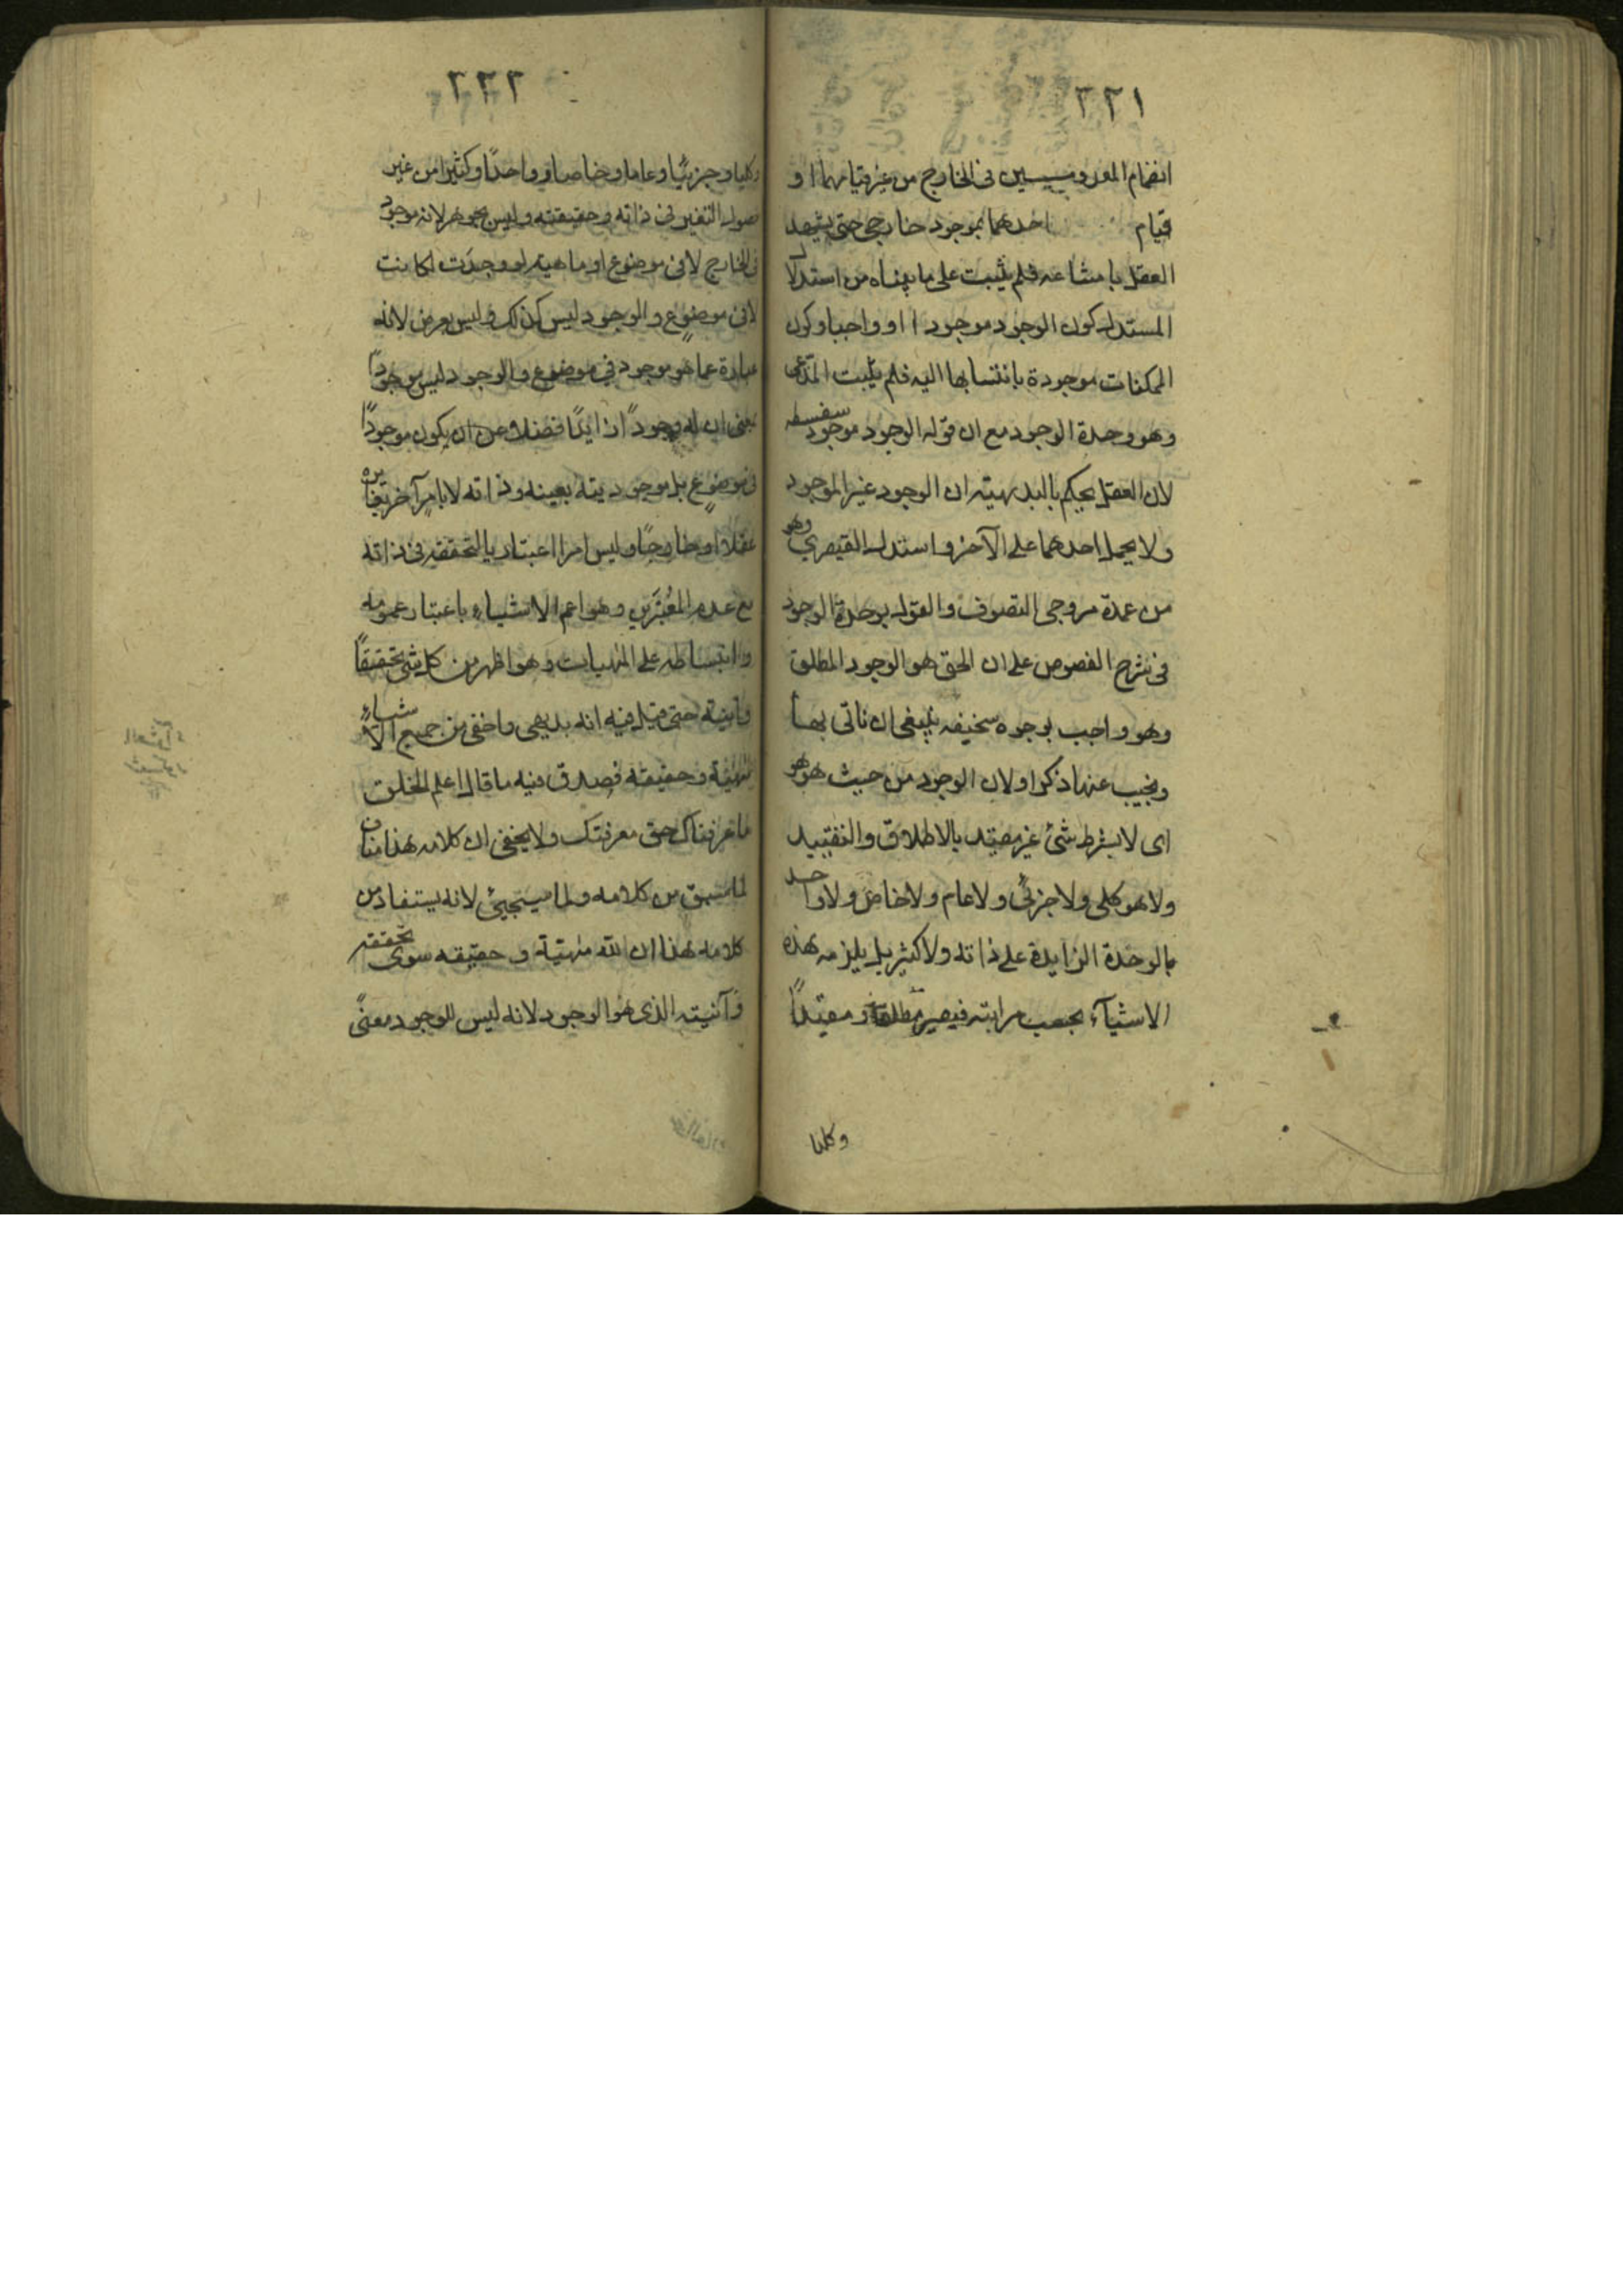 ٢٢١
انضمام المعدومين فى الخارج من غير قيامهما او
قيام احدهما بموجود خارجى حتى يشهد
العقل بامتناعه فلم يثبت على ما بيناه من استدلال
المستدل كون الوجود موجودا او واجبا وكون
الممكنات موجودة بانتسابها اليه فلم يثبت المدّعى
وهو وحدة الوجود مع ان قوله الوجود موجود سفسطه
لان العقل يحكم بالبديهته ان الوجود غير الموجود
ولا يحمل احدهما على الآخر واستدل القيصرى وهو
من عمدة مروجى التصوف والقول بوحدة الوجود
فى شرح الفصوص على ان الحق هو الوجود المطلق
وهو واجب بوجوه سخيفه ينبغى ان ناتى بها
ونجيب عنها ذكر اولا ان الوجود من حيث هو هو
اى لا بشرط شئ غير مقيد بالاطلاق والتقييد
ولا هو كلى ولا جزئى ولا عام ولا خاص ولا واحد
بالوحدة الزايدة على ذاته ولا كثير بل يلزمه هذه
الاشيآء بحسب مراتبه فيصير مطلقا ومقيّداً
وكليا
٢٢٢
وكليا وجزئيّا وعاما وخاصا وواحدًا وكثيرا من غير
حصول التغير فى ذاته وحقيقته وليس بجوهر لانه موجود
فى الخارج لا فى موضوع او ماهية لو وجدت لكانت
لا فى موضوع والوجود ليس كذلك وليس بعرض لانه
عبارة عما هو موجود فى موضوع والوجود ليس موجوداً
بمعنى ان له وجوداً زايدًا فضلا عن ان يكون موجوداً
فى موضوع بل موجوديته بعينه وذاته لا بامر آخر يغايره
عقلاً او خارجًا وليس امرا اعتباريا لتحققه فى ذاته
مع عدم المعتبرين وهو اعم الاشياء باعتبار عمومه
وانبساطه على المهيات وهو اظهر من كل شئ تحققاً
وآنية حتى قيل فيه انه بديهى واخفى من جميع الاشياء
مهية وحقيقة فصدق فيه ما قال اعلم الخلق
ما عرفناك حق معرفتك ولا يخفى ان كلامه هذا مناف
لما سبق من كلامه ولما سيجيئ لانه يستفاد من
كلامه هذا ان لله مهيّة وحقيقه سوى تحققه
وآنيته الذى هو الوجود لانه ليس للوجود معنًى